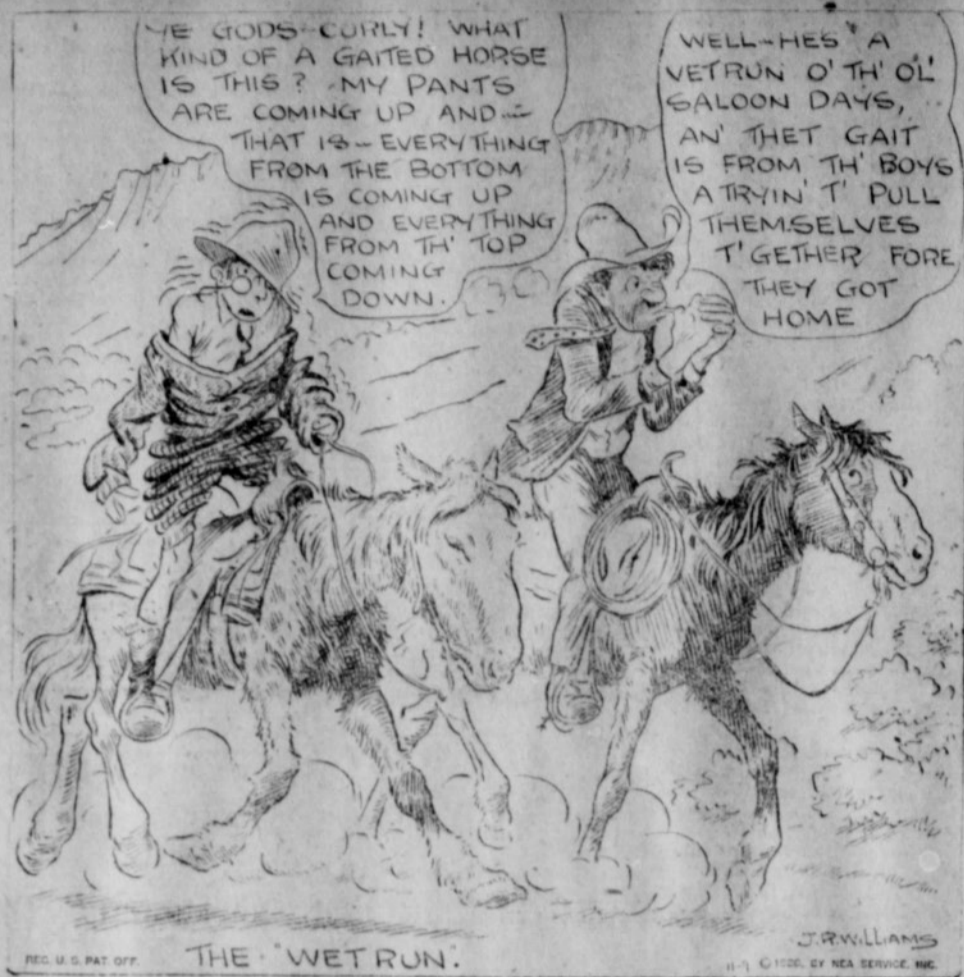 YE GODS-CURLY! WHAT
KIND OF A GAITED HORSE
IS THIS? MY PANTS
ARE COMING UP AND--
THAT IS-EVERYTHING
FROM THE BOTTOM
IS COMING UP
AND EVERYTHING
FROM TH' TOP
COMING
DOWN.
WELL-HES A
VETRUN O' TH' OL'
SALOON DAYS,
AN' THET GAIT
IS FROM TH' BOYS
A TRYIN' T' PULL
THEMSELVES
T'GETHER FORE
THEY GOT
HOME
REG. U. S. PAT. OFF.
THE "WET RUN".
J.R.WILLIAMS
11-9 © BY NEA SERVICE, INC.